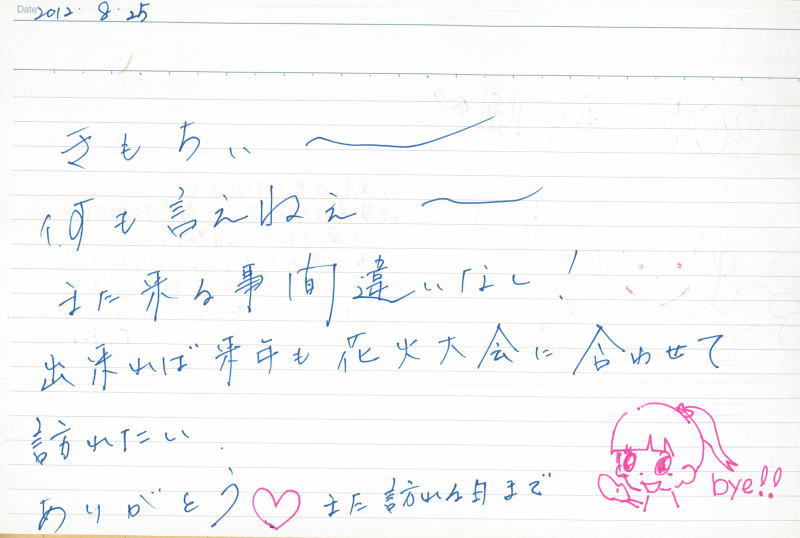 Date 2012・8・25
きもちぃ～
何も言えねぇ～
また来る事間違いなし!
出来れば来年も花火大会に合わせて
訪れたい.
ありがとう♡ また訪れる日まで
bye!!